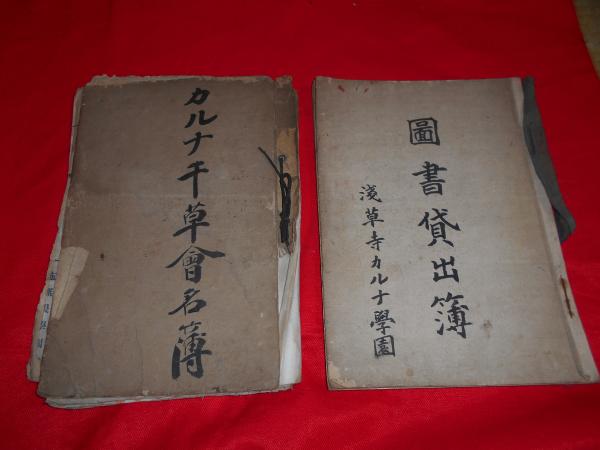 カルナ千草會名簿
圖書貸出簿
淺草寺カルナ學園